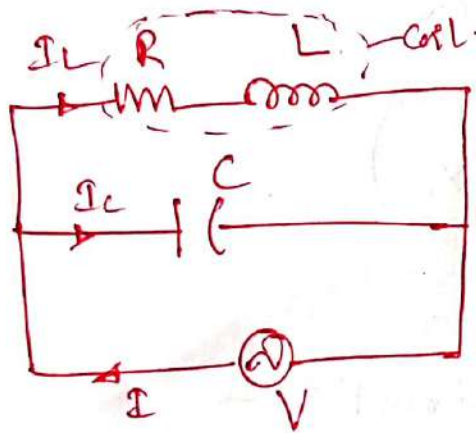 I_L R L coil
I_C C
I V